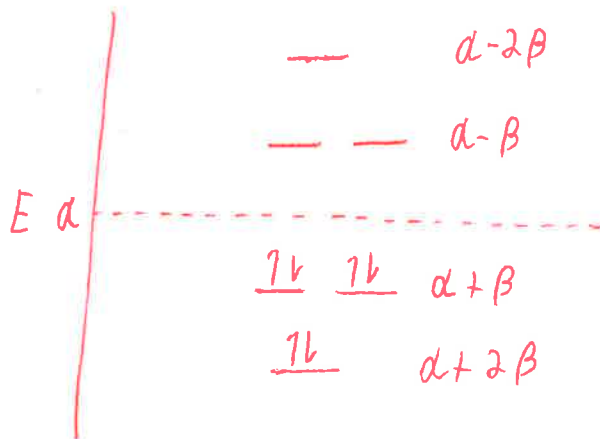 α-2β
α-β
E α
α+β
α+2β